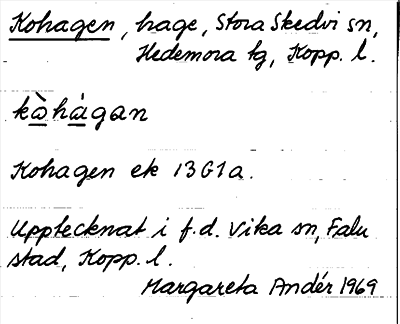 Kohagen, hage, Stora Skedvi sn,
Hedemora tg, Kopp. l.
kàhágan
Kohagen ek 13G1a.
Upptecknat i f.d. Vika sn, Falu
stad, Kopp. l.
Margareta Andér 1969